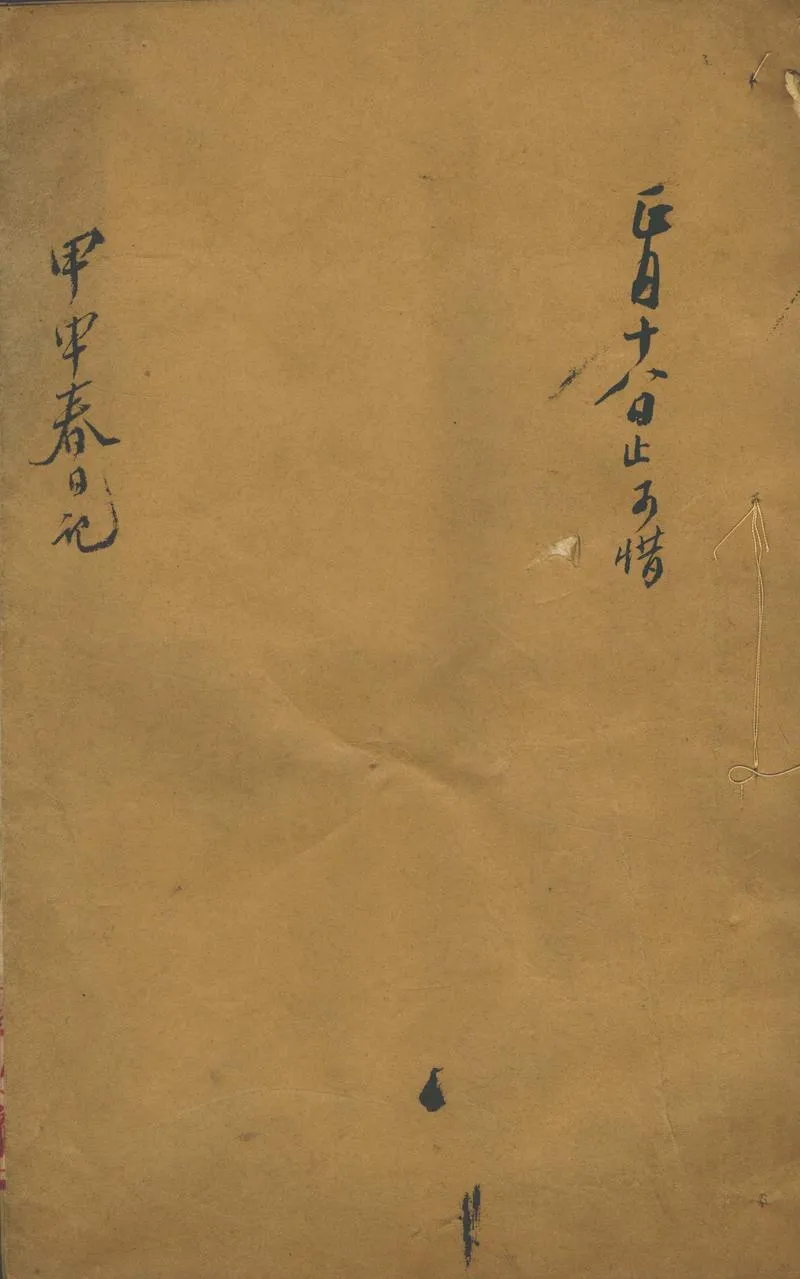 正月十八日止可惜
甲申春日记